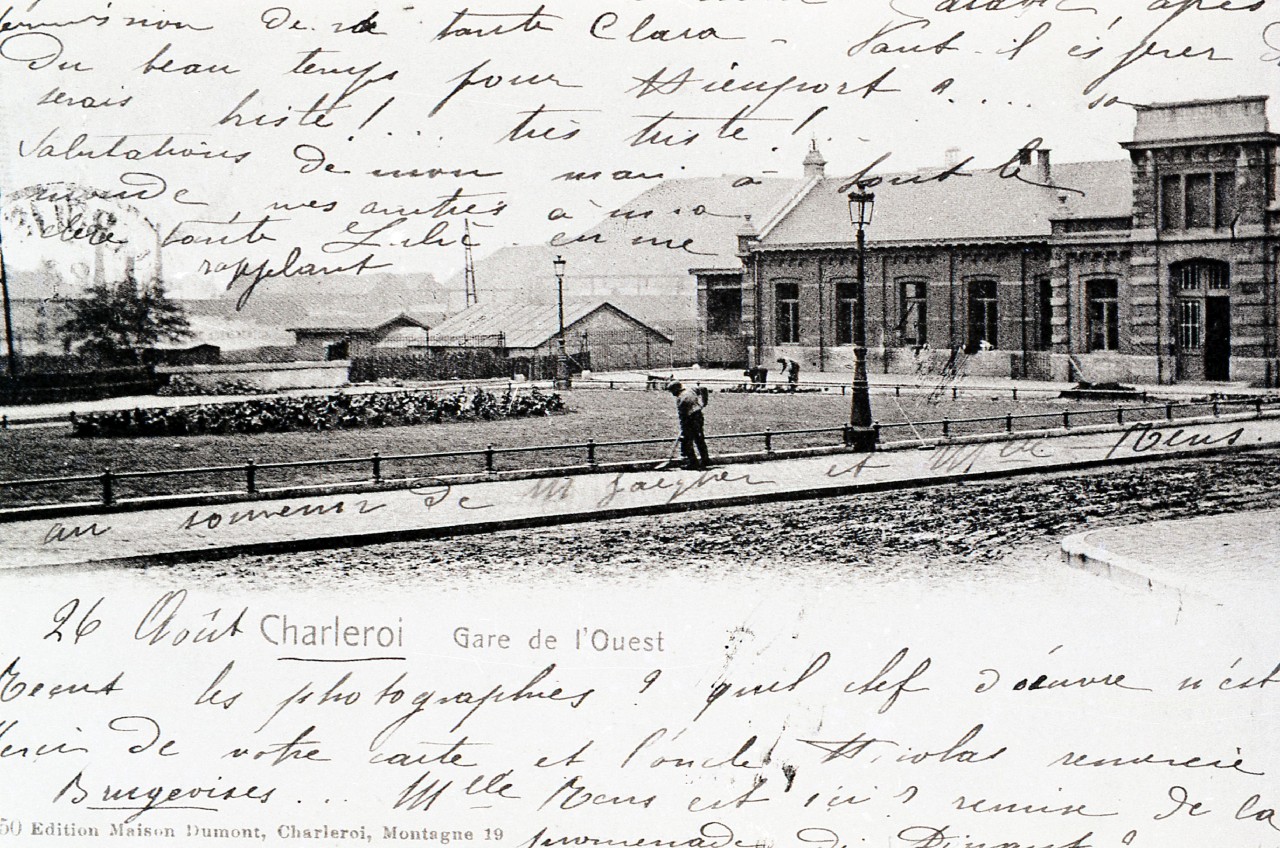 permission de sa tante Clara - Faut-il espérer
Du beau temps pour Nieuport ? ....
serais triste!... très triste!
Salutations de mon mari à tout le
monde mes autres à ma
chère tante en me
rappelant
au souvenir de M Jaegher et Mlle Rens.
26 Août Charleroi Gare de l'Ouest
Reçut les photographies ? quel chef d'oeuvre n'est
Merci de votre carte et l'oncle Nicolas remercie
Brugeoises ... Mlle Rens est ici? remise de la
50 Edition Maison Dumont, Charleroi, Montagne 19
promenade de Dinant?